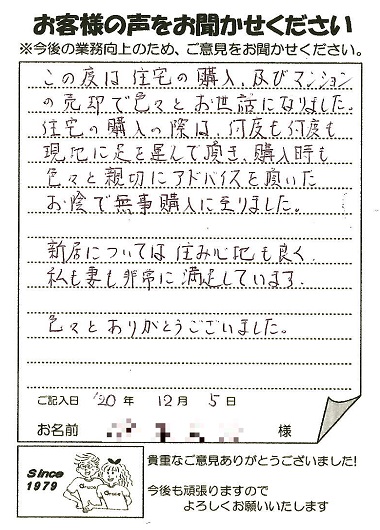 お客様の声をお聞かせください
※今後の業務向上のため、ご意見をお聞かせください。
この度は住宅の購入、及びマンション
の売却で色々とお世話になりました。
住宅の購入の際は、何度も何度も
現地に足を運んで頂き、購入時も
色々と親切にアドバイスを頂いた
お陰で無事購入に至りました。
新居については住み心地も良く、
私も妻も非常に満足しています。
色々とありがとうございました。
ご記入日 '20 年 12 月 5 日
お名前 様
Since
1979
貴重なご意見ありがとうございました!
今後も頑張りますので
よろしくお願いいたします